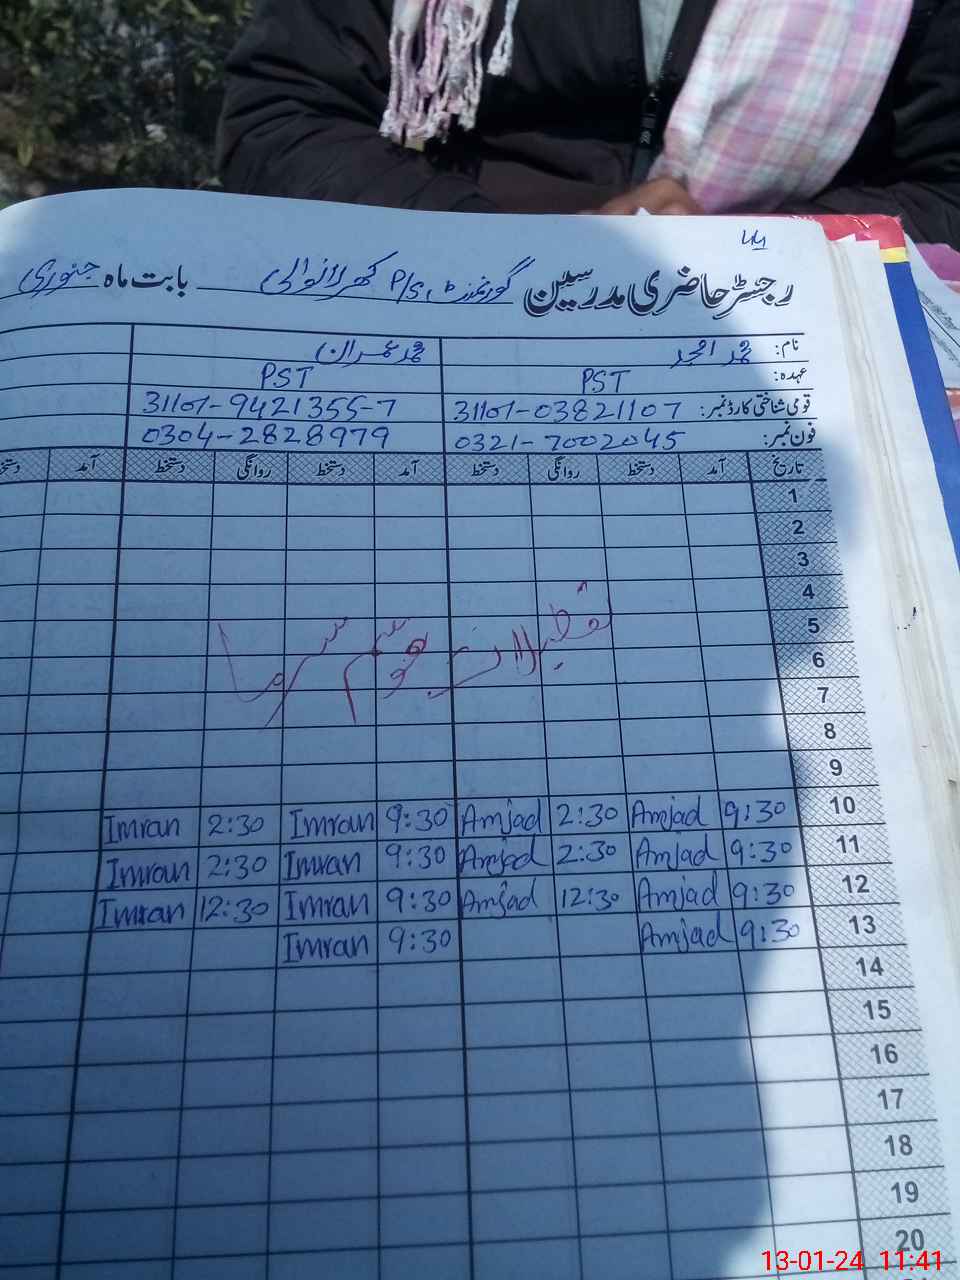 رجسٹر حاضری مدرسین گورنمنٹ P/S کھرلانوالی بابت ماہ جنوری
نام: محمد امجد محمد عمران
عہدہ: PST PST
قومی شناختی کارڈ نمبر: 31101-03821107 31101-9421355-7
فون نمبر: 0321-7002045 0304-2828979
تاریخ آمد دستخط روانگی دستخط آمد دستخط روانگی دستخط آمد دستخط
1
2
3
4
5
تعطیلات موسم سرما
6
7
8
9
10 9:30 Amjad 2:30 Amjad 9:30 Imran 2:30 Imran
11 9:30 Amjad 2:30 Amjad 9:30 Imran 2:30 Imran
12 9:30 Amjad 12:30 Amjad 9:30 Imran 12:30 Imran
13 9:30 Amjad 9:30 Imran
14
15
16
17
18
19
20
13-01-24 11:41